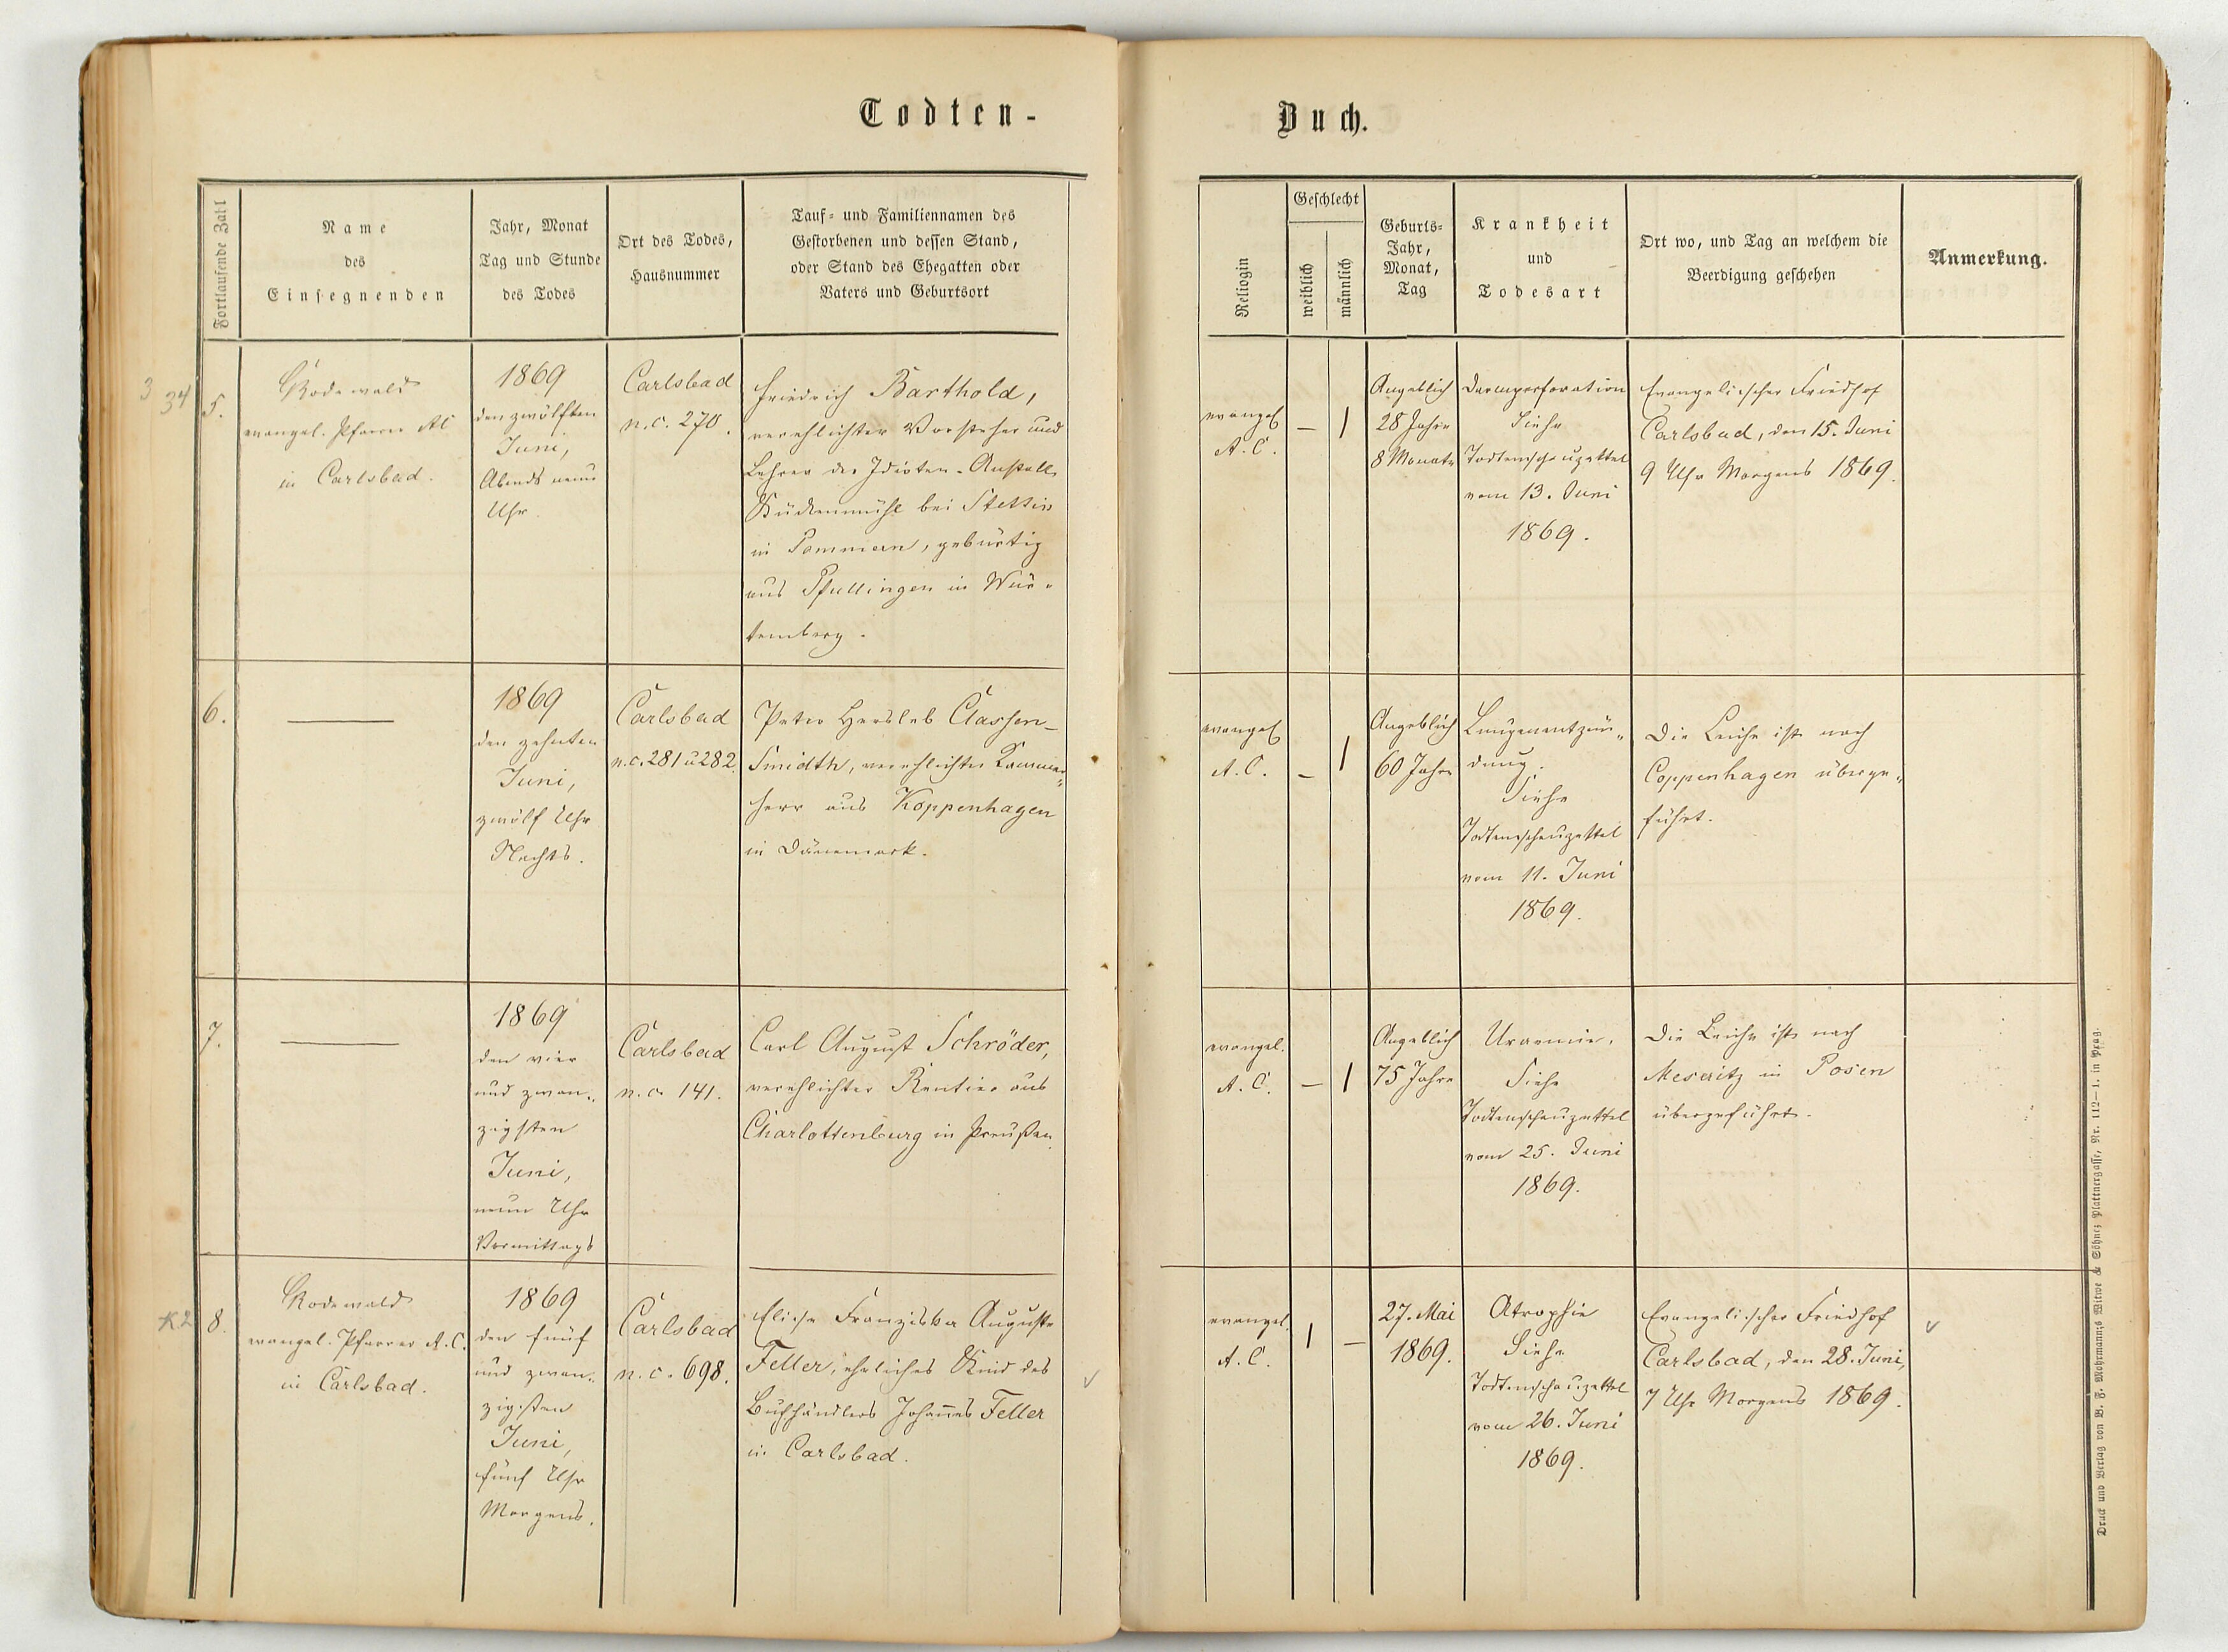 Todten-
Buch.
Fortlaufende Zahl
Name
des
Einsegnenden
Jahr, Monat
Tag und Stunde
des Todes
Ort des Todes,
Hausnummer
Tauf- und Familiennamen des
Gestorbenen und dessen Stand,
oder Stand des Ehegatten oder
Vaters und Geburtsort
Religoin
Geschlecht
weiblich
männlich
Geburts-
Jahr,
Monat,
Tag
Krankheit
und
Todesart
Ort wo, und Tag an welchem die
Beerdigung geschehen
Anmerkung.
3 34
5.
Rodewald
evangel. Pfarrer AC
in Carlsbad.
1869
den zwölften
Juni,
Abends neun
Uhr.
Carlsbad
n.c. 270.
Friedrich Barthold,
verehlichter Vorsteher und
Lehrer der Idioten-Anstalt
Kückenmühl bei Stettin
in Pommern, gebürtig
aus Pfullingen in Wür-
temberg.
evangel
A.C.
— 1
Angeblich
28 Jahre
8 Monate
Darmperforation
Siehe
Todtenschauzettel
vom 13. Juni
1869.
Evangelischer Friedhof
Carlsbad, den 15. Juni
9 Uhr Morgens 1869.
6.
—
1869
den zehnten
Juni,
zwölf Uhr
Nachts.
Carlsbad
n.c. 281 u 282.
Peter Hersleb Classen-
Smidth, verehlichter Kammer-
herr aus Koppenhagen
in Dänemark.
evangel
A.C.
— 1
Angeblich
60 Jahre
Lungenentzün-
dung.
Siehe
Todtenschauzettel
vom 11. Juni
1869.
Die Leiche ist nach
Coppenhagen überge-
führt.
7.
—
1869
den vier
und zwan-
zigsten
Juni,
neun Uhr
Vormittags
Carlsbad
n.c. 141.
Carl August Schröder,
verehlichter Rentier aus
Charlottenburg in Preußen.
evangel.
A.C.
— 1
Angeblich
75 Jahre
Uraemie.
Siehe
Todtenschauzettel
vom 25. Juni
1869.
Die Leiche ist nach
Meseritz in Posen
übergeführt.
K2
8.
Rodewald
evangel. Pfarrer A.C.
in Carlsbad.
1869
den fünf
und zwan-
zigsten
Juni,
fünf Uhr
Morgens.
Carlsbad
n.c. 698.
Elise Franziska Auguste
Feller, ehliches Kind des
Buchhändlers Johannes Feller
in Carlsbad.
evangel.
A.C.
1 —
27. Mai
1869.
Atrophie
Siehe
Todtenschauzettel
vom 26. Juni
1869.
Evangelischer Friedhof
Carlsbad, den 28. Juni,
7 Uhr Morgens 1869.
Druck und Verlag von B. F. Mohrmann;s Witwe & Söhne; Plattnergasse, Nr. 112—1. in Prag.